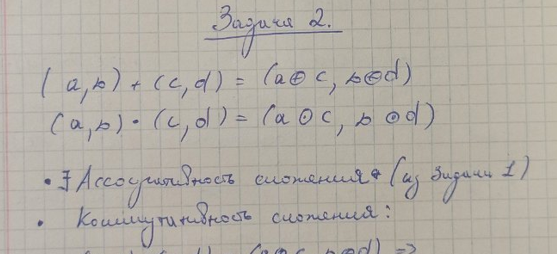 Задача 2.
(a, b) + (c, d) = (a ⊕ c, b ⊕ d)
(a, b) · (c, d) = (a ⊙ c, b ⊙ d)
• ∃ Ассоциативность сложения (из Задачи 1)
• Коммутативность сложения: